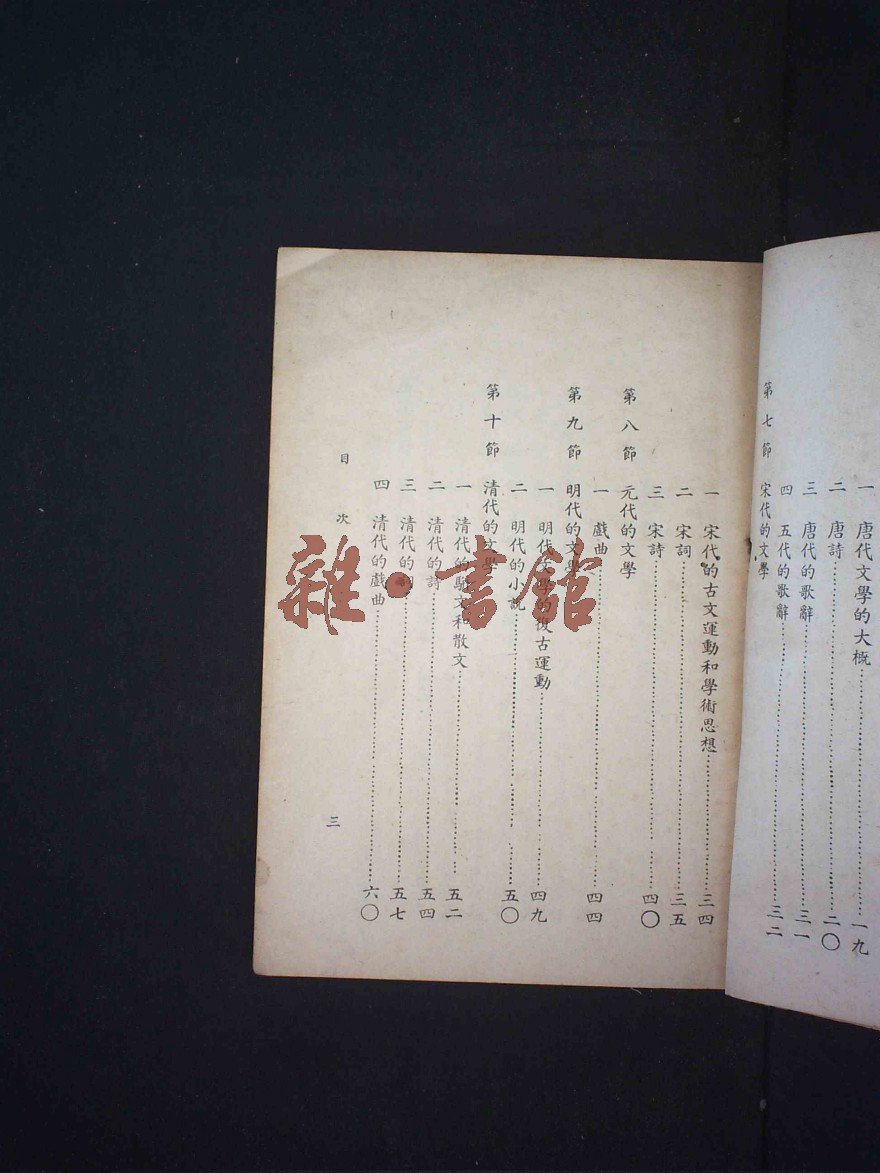 一　唐代文學的大概……一九
二　唐詩……二〇
三　唐代的歌辭……三一
四　五代的歌辭……三二
第七節　宋代的文學
一　宋代的古文運動和學術思想……三四
二　宋詞……三五
三　宋詩……四〇
第八節　元代的文學
一　戲曲……四四
第九節　明代的文學
一　明代文學的復古運動……四九
二　明代的小說……五〇
第十節　清代的文學
一　清代的駢文和散文……五二
二　清代的詩……五四
三　清代的詞……五七
四　清代的戲曲……六〇
目次
三
雜·書館